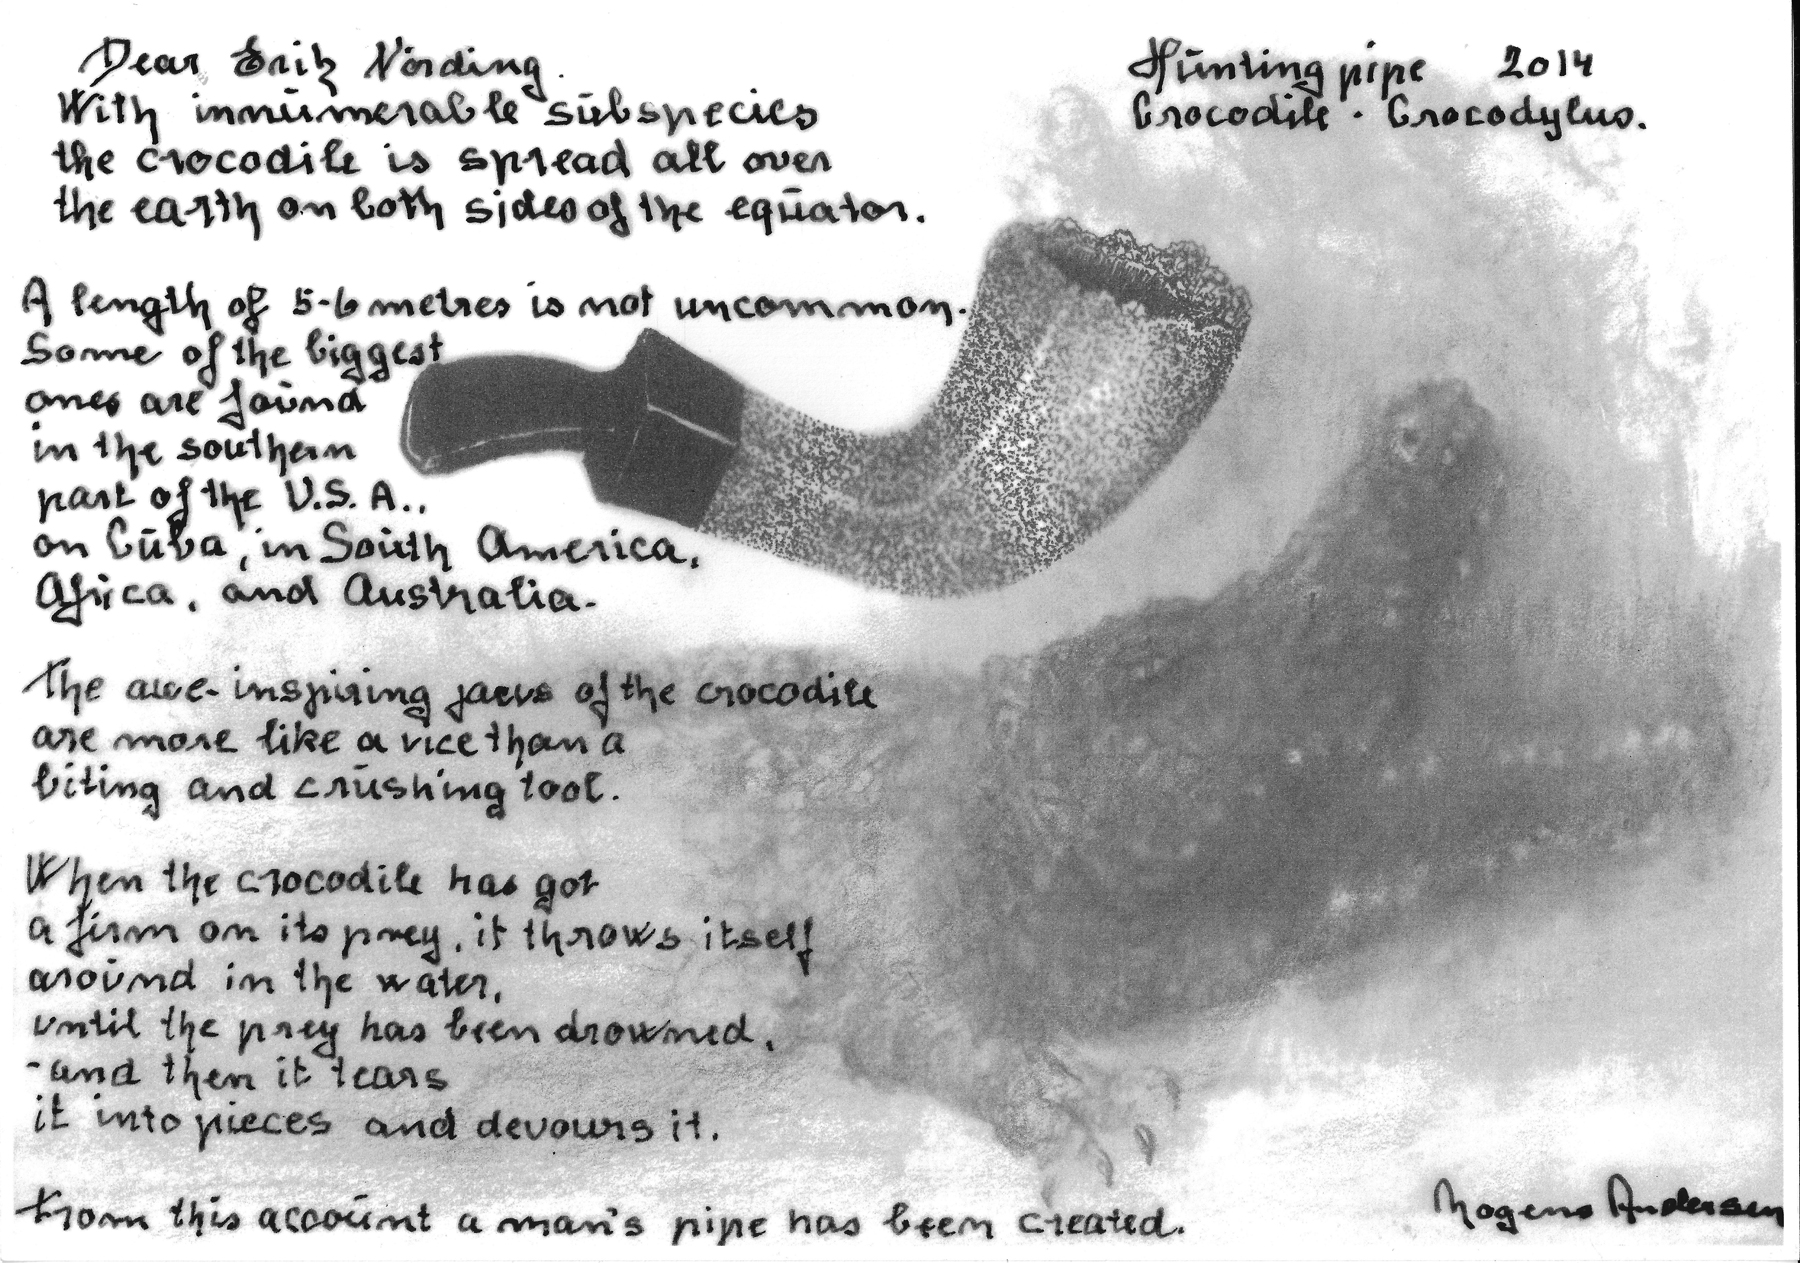 Dear Erik Nörding.
With innumerable subspecies
the crocodile is spread all over
the earth on both sides of the equator.
Hunting pipe 2014
Crocodile · Crocodylus.
A length of 5-6 metres is not uncommon.
Some of the biggest
ones are found
in the southern
part of the U.S.A..,
on Cuba, in South America,
Africa, and Australia.
The awe-inspiring jaws of the crocodile
are more like a vice than a
biting and crushing tool.
When the crocodile has got
a firm on its prey, it throws itself
around in the water,
until the prey has been drowned,
-and then it tears
it into pieces and devours it.
From this account a man's pipe has been created.
Mogens Andersen